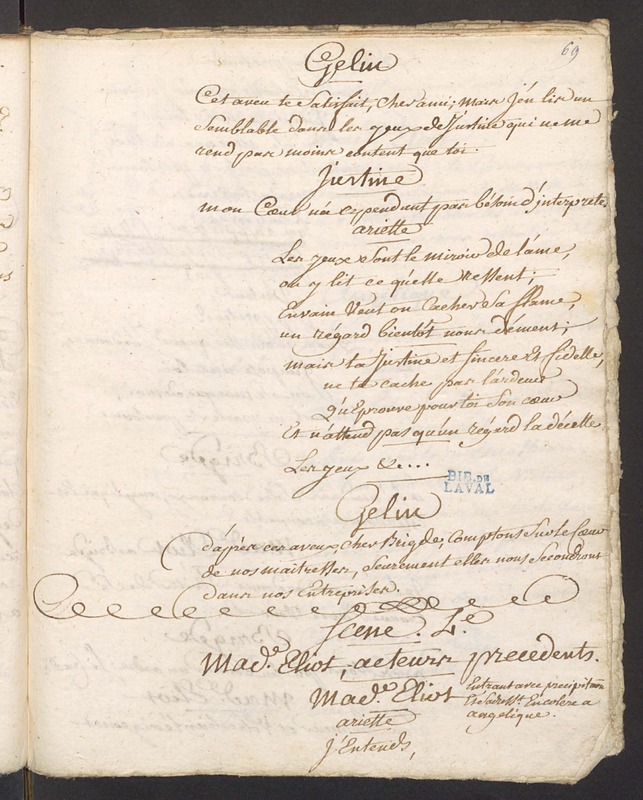 69
Gelin
Cet aveu te Satisfait, Cher ami; mais J'en lis un
Semblable dans les yeux de Justine qui ne me
rend pas moins content que toi.
Justine
mon Cœur n'a cependant pas bésoin d'interprete
ariette
Les yeux Sont le miroir de l'ame,
on y lit ce qu'elle Ressent;
Envain Veut on Cacher Sa flame,
un régard bientôt nous dément;
mais ta Justine est Sincere Et fidelle,
ne te cache pas l'ardeur
Qu'Eprouve pour toi Son cœur
Et n'attend pas qu'un régard la décelle
Les yeux &c...
BIB. DE
LAVAL
Gelin
d'après ces aveux, Cher Brigde, Comptons Sur le Cœur
de nos maitresses, Seurement elles nous Seconderont
dans nos Entreprises.
Scene. 4.e
Mad.e Eliot, acteurs précedents.
Mad.e Eliot Entrant avec précipitation
Et Encolere a
angelique.
ariette
J'Entends,